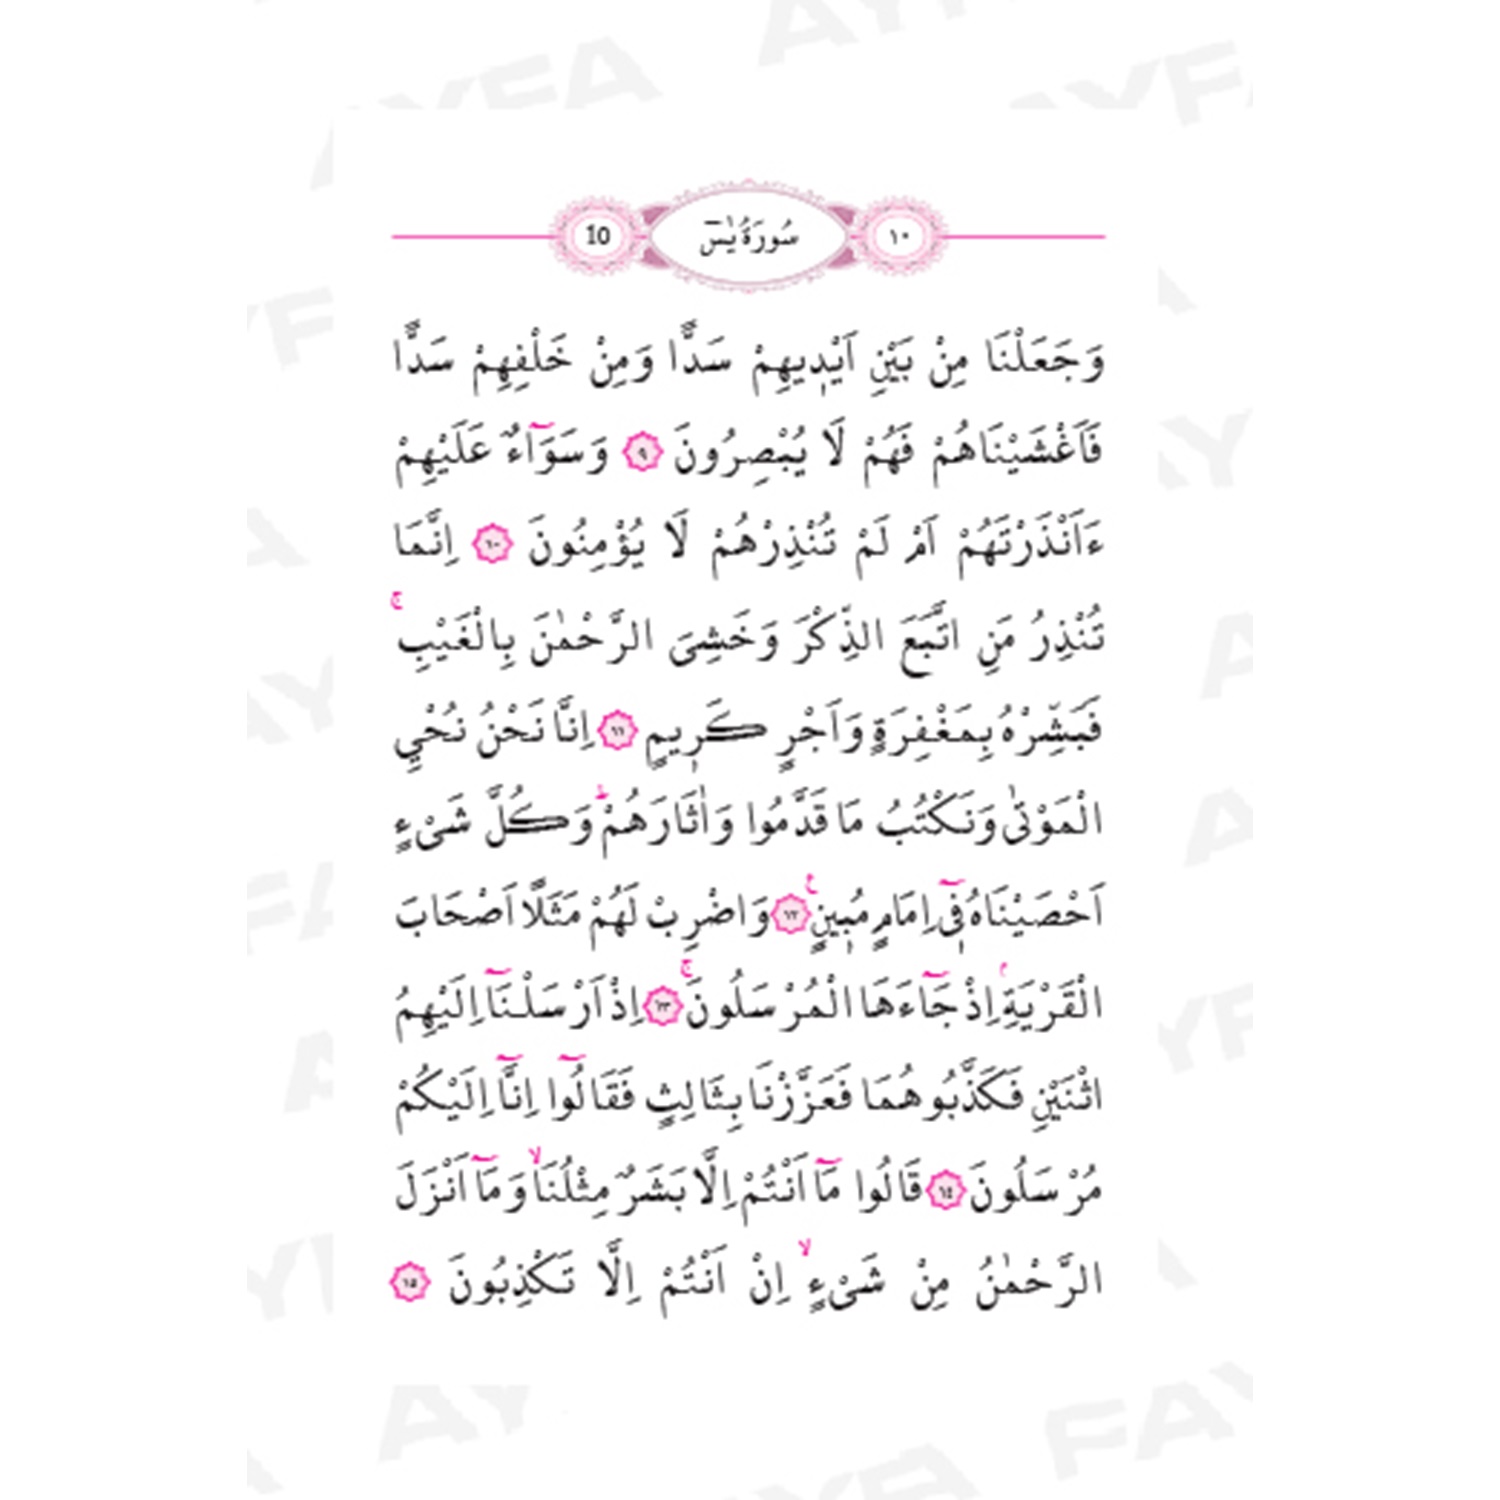 10 سُورَةُ يٰسٓ ١٠
وَجَعَلْنَا مِنْ بَيْنِ اَيْد۪يهِمْ سَدًّا وَمِنْ خَلْفِهِمْ سَدًّا
فَاَغْشَيْنَاهُمْ فَهُمْ لَا يُبْصِرُونَ ٩ وَسَوَٓاءٌ عَلَيْهِمْ
ءَاَنْذَرْتَهُمْ اَمْ لَمْ تُنْذِرْهُمْ لَا يُؤْمِنُونَ ١٠ اِنَّمَا
تُنْذِرُ مَنِ اتَّبَعَ الذِّكْرَ وَخَشِىَ الرَّحْمٰنَ بِالْغَيْبِۚ
فَبَشِّرْهُ بِمَغْفِرَةٍ وَاَجْرٍ كَر۪يمٍ ١١ اِنَّا نَحْنُ نُحْيِ
الْمَوْتٰى وَنَكْتُبُ مَا قَدَّمُوا وَاٰثَارَهُمْۜ وَكُلَّ شَىْءٍ
اَحْصَيْنَاهُ ف۪ٓى اِمَامٍ مُب۪ينٍ۟ ١٢ وَاضْرِبْ لَهُمْ مَثَلًا اَصْحَابَ
الْقَرْيَةِۢ اِذْ جَٓاءَهَا الْمُرْسَلُونَۚ ١٣ اِذْ اَرْسَلْنَٓا اِلَيْهِمُ
اثْنَيْنِ فَكَذَّبُوهُمَا فَعَزَّزْنَا بِثَالِثٍ فَقَالُٓوا اِنَّٓا اِلَيْكُمْ
مُرْسَلُونَ ١٤ قَالُوا مَٓا اَنْتُمْ اِلَّا بَشَرٌ مِثْلُنَاۙ وَمَٓا اَنْزَلَ
الرَّحْمٰنُ مِنْ شَىْءٍۙ اِنْ اَنْتُمْ اِلَّا تَكْذِبُونَ ١٥
AYFA